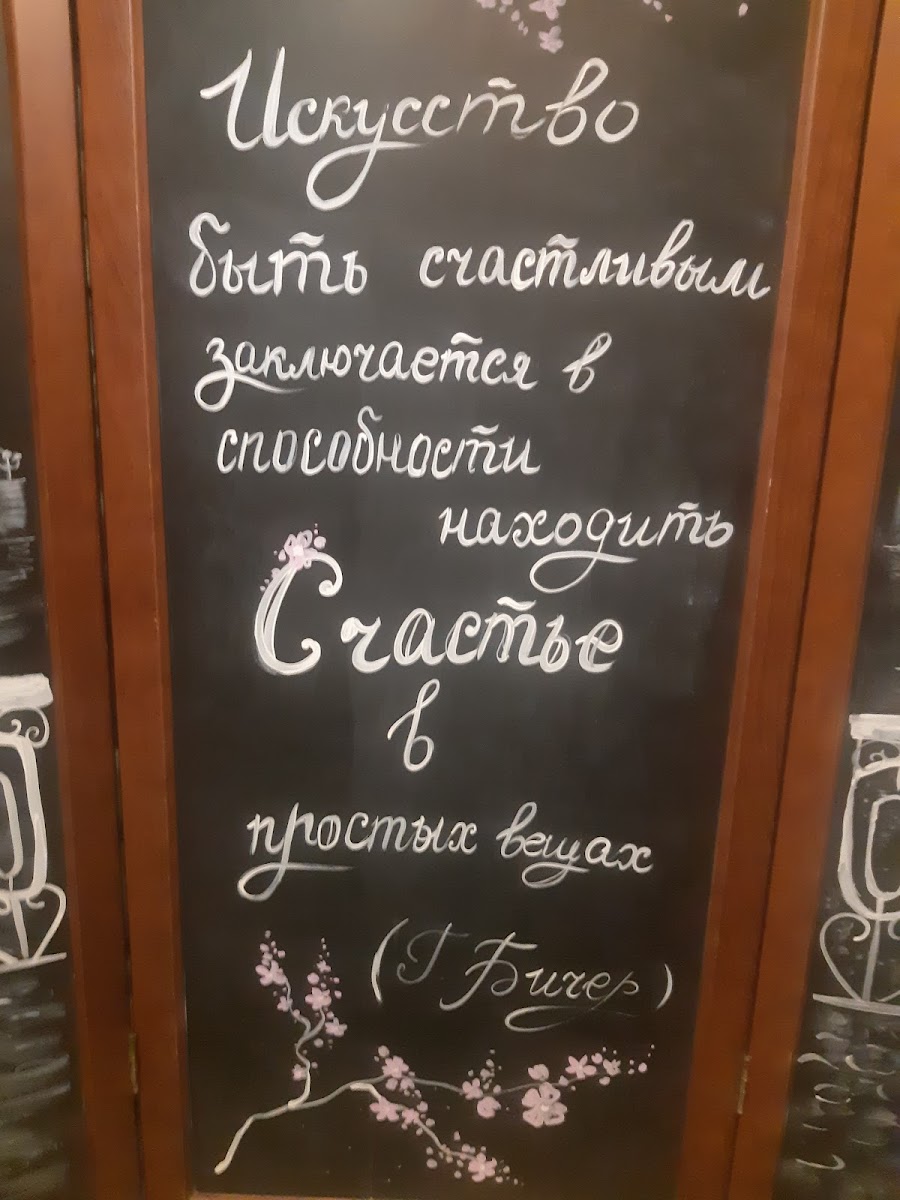 Искусство
быть счастливым
заключается в
способности
находить
Счастье
в
простых вещах
(Г. Бичер)